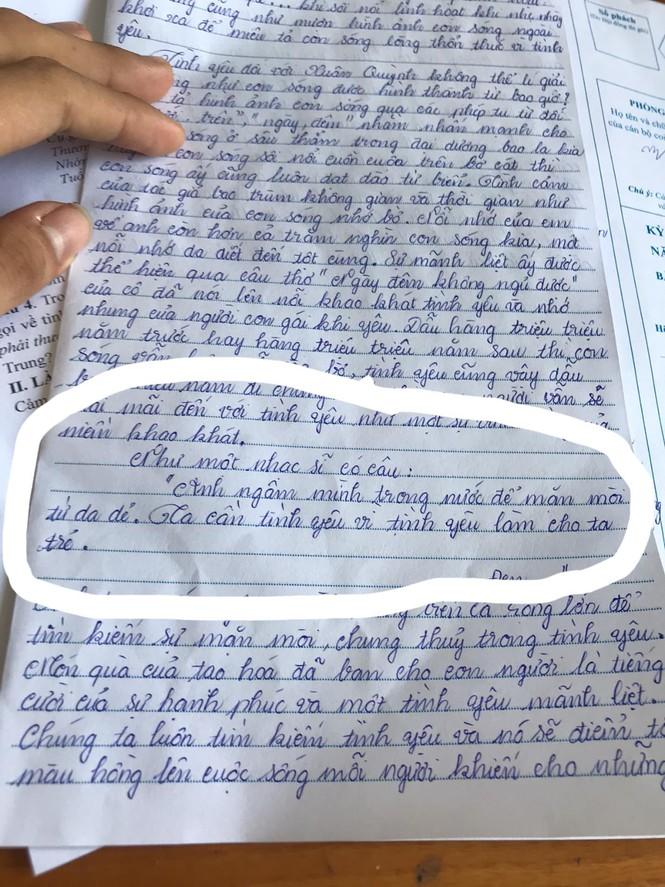 cũng như mượn hình ảnh con sóng ngoài
khơi xa để miêu tả con sóng lòng thổn thức vì tình
yêu.
Tình yêu đối với Xuân Quỳnh không thể lí giải
như con sóng được hình thành từ bao giờ?
tả hình ảnh con sóng qua các phép tu từ đối
trên", "ngày, đêm" nhằm nhấn mạnh cho
sóng ở sâu thẳm trong đại dương bao la kia
con sóng sô nổi cuồn cuộn trên bờ cát thì
con sóng ấy cũng luôn dạt dào từ biển. Tình cảm
của tác giả bao trùm không gian và thời gian như
hình ảnh của con sóng nhớ bờ. Nỗi nhớ của em
về anh còn hơn cả trăm nghìn con sóng kia, một
nỗi nhớ da diết đến tột cùng. Sự mãnh liệt ấy được
thể hiện qua câu thơ "Ngày đêm không ngủ được"
của cô đã nói lên nỗi khao khát tình yêu và nhớ
nhung của người con gái khi yêu. Dẫu hàng triệu triệu
năm trước hay hàng triệu triệu năm sau thì con
sóng vẫn bờ, tình yêu cũng vậy dẫu
năm đi chăng vẫn sẽ
mãi đến với tình yêu như một sự
niềm khao khát.
Như một nhạc sĩ có câu:
"Anh ngâm mình trong nước để mặn mòi
từ da dẻ. Ta cần tình yêu vì tình yêu làm cho ta
trẻ.
Đen
trên cả rong lớn để
tìm kiếm sự mặn mòi, chung thuỷ trong tình yêu.
Món quà của tạo hoá đã ban cho con người là tiếng
cười của sự hạnh phúc và một tình yêu mãnh liệt.
Chúng ta luôn tìm kiếm tình yêu và nó sẽ điểm tô
màu hồng lên cuộc sống mỗi người khiến cho những
Số phách
PHÒNG
Họ tên và chữ
của cán bộ coi
Chú ý:
KỲ
4. Trong
gọi về tình
phải thư
Trung?
II. LÀ
Cảm